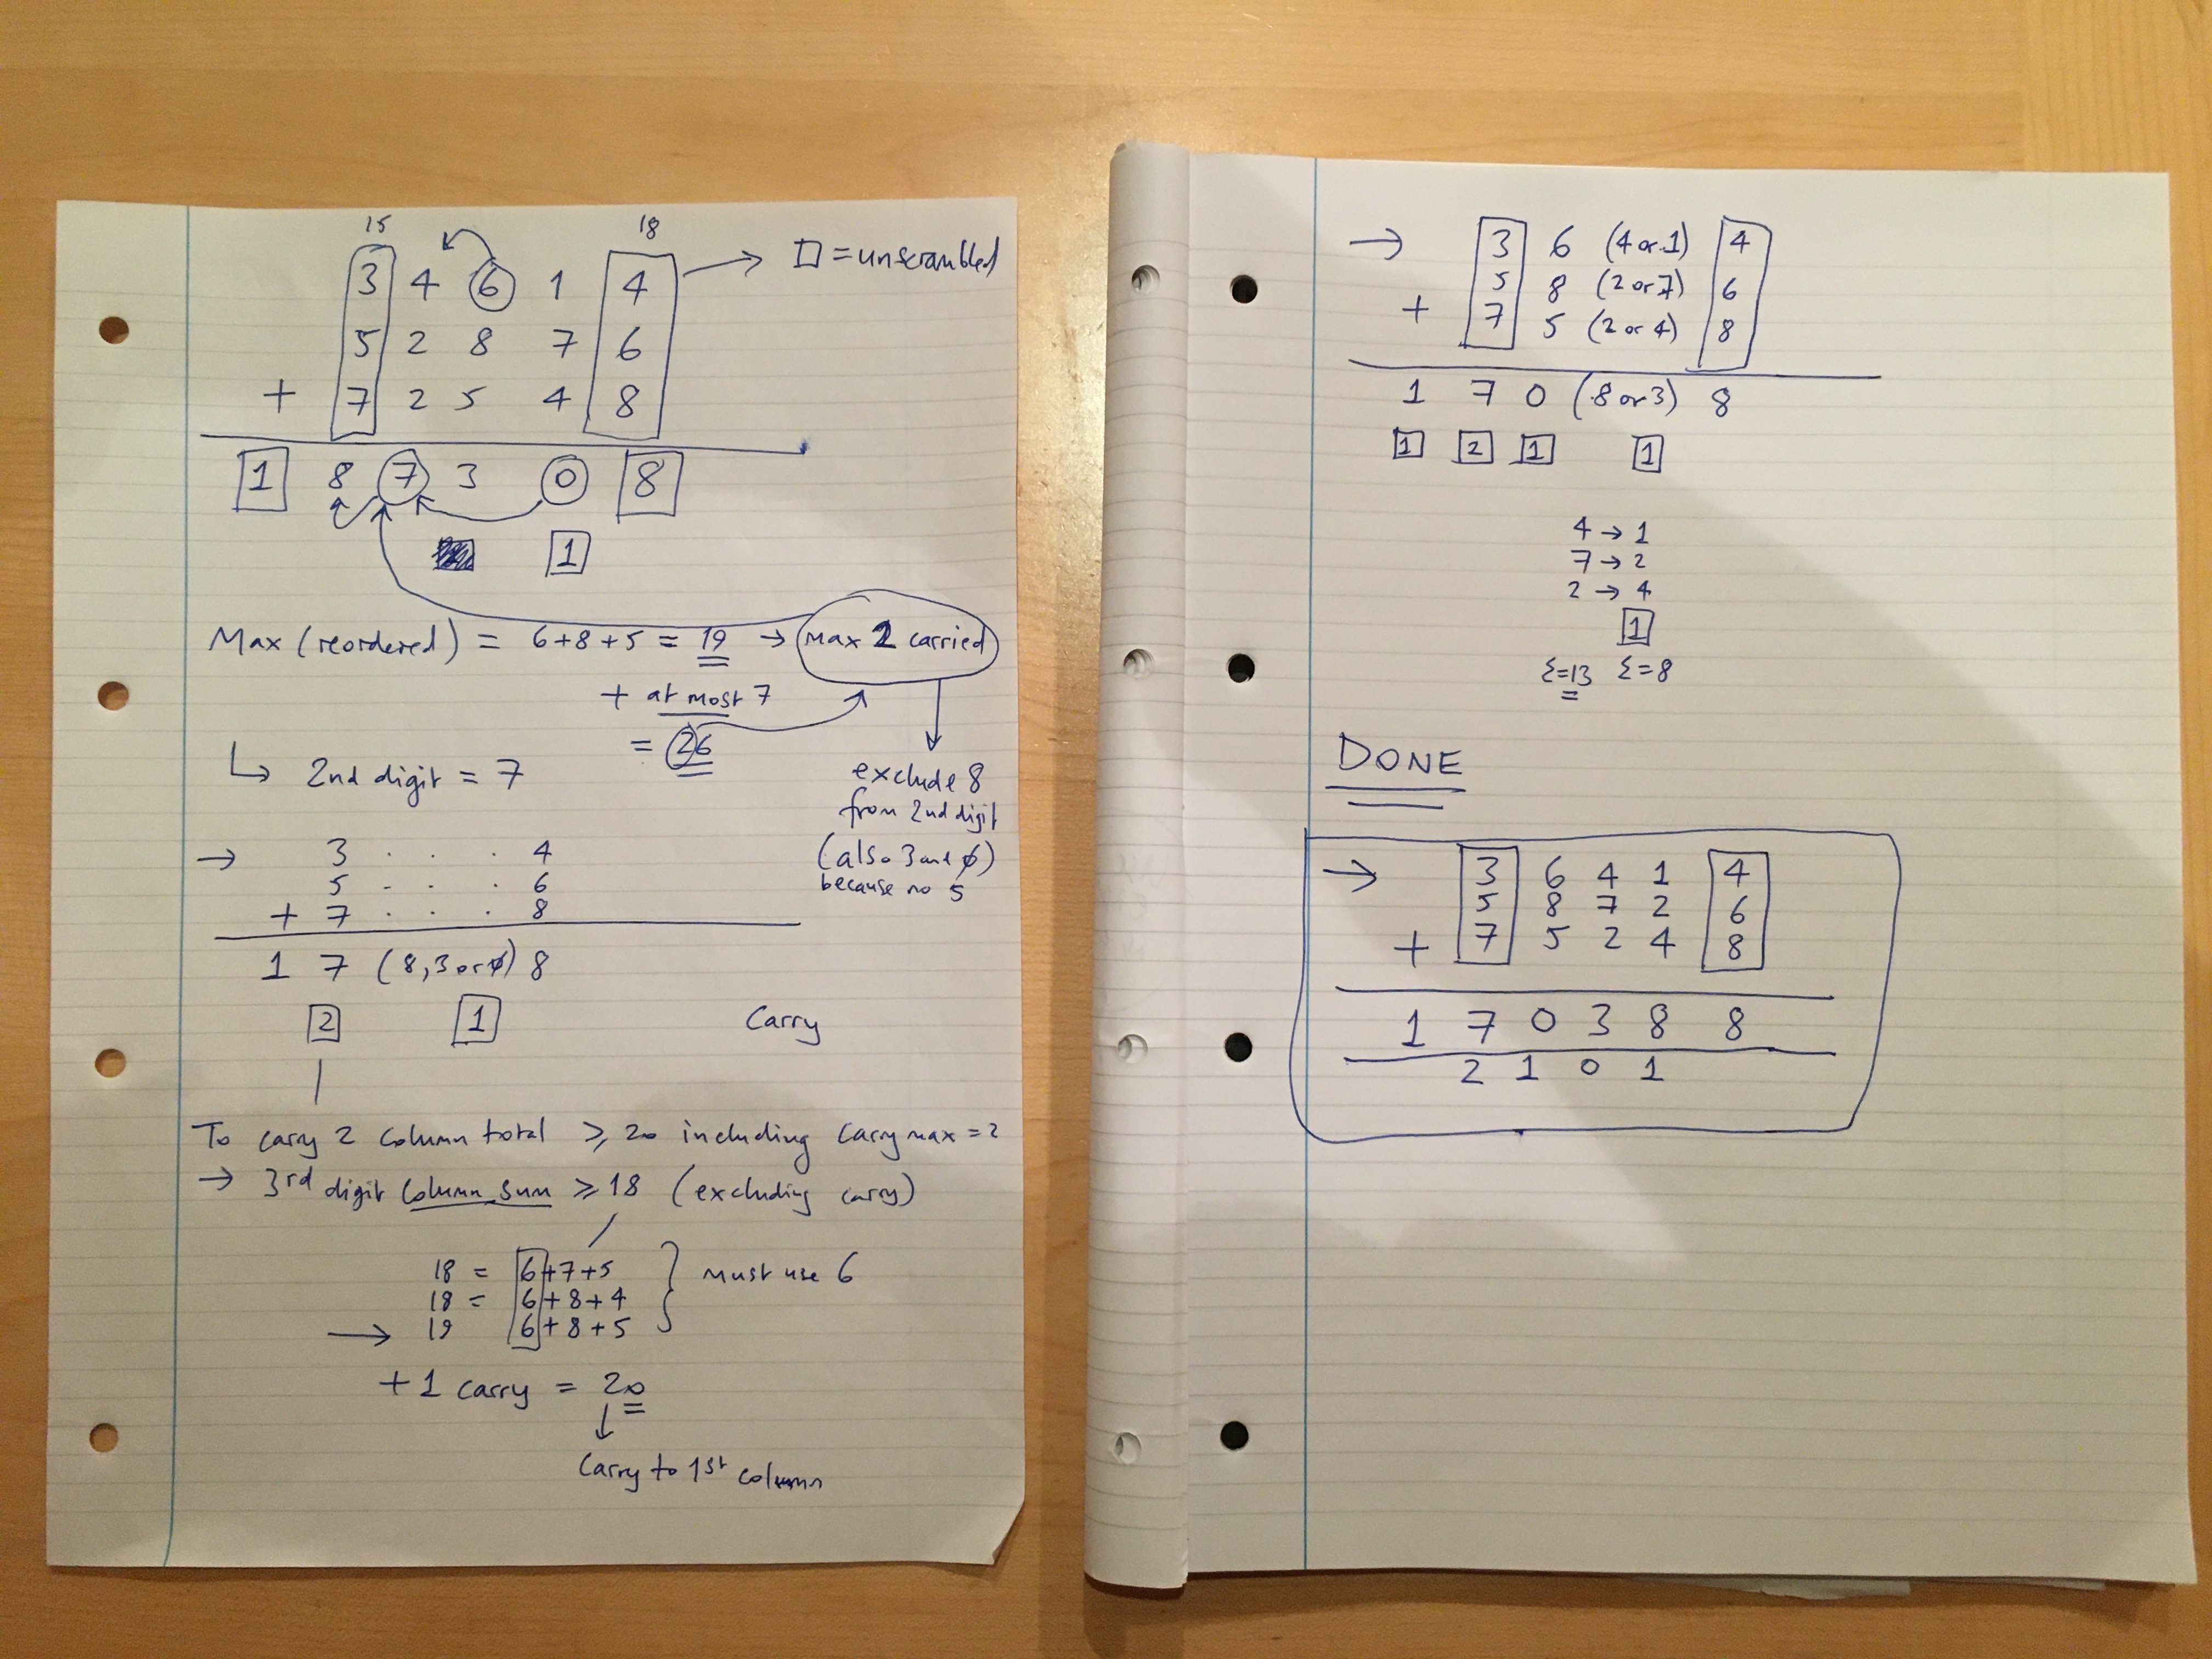 15 18
3 4 6 1 4 → □ = unscrambled
5 2 8 7 6
+ 7 2 5 4 8
1 8 7 3 0 8
1
Max (reordered) = 6+8+5 = 19 → max 2 carried
+ at most 7
= 26
↳ 2nd digit = 7
exclude 8
from 2nd digit
(also 3 and 0)
because no 5
→ 3 . . . 4
5 . . . 6
+ 7 . . . 8
1 7 (8,3 or 0) 8
2 1 Carry
To carry 2 column total ≥ 20 including carry max = 2
→ 3rd digit column sum ≥ 18 (excluding carry)
18 = 6+7+5
18 = 6+8+4
→ 19 6+8+5
} must use 6
+ 1 carry = 20
↓
Carry to 1st column
→ 3 6 (4 or 1) 4
5 8 (2 or 7) 6
+ 7 5 (2 or 4) 8
1 7 0 (8 or 3) 8
1 2 1 1
4 → 1
7 → 2
2 → 4
1
Σ=13 Σ=8
DONE
→ 3 6 4 1 4
5 8 7 2 6
+ 7 5 2 4 8
1 7 0 3 8 8
2 1 0 1